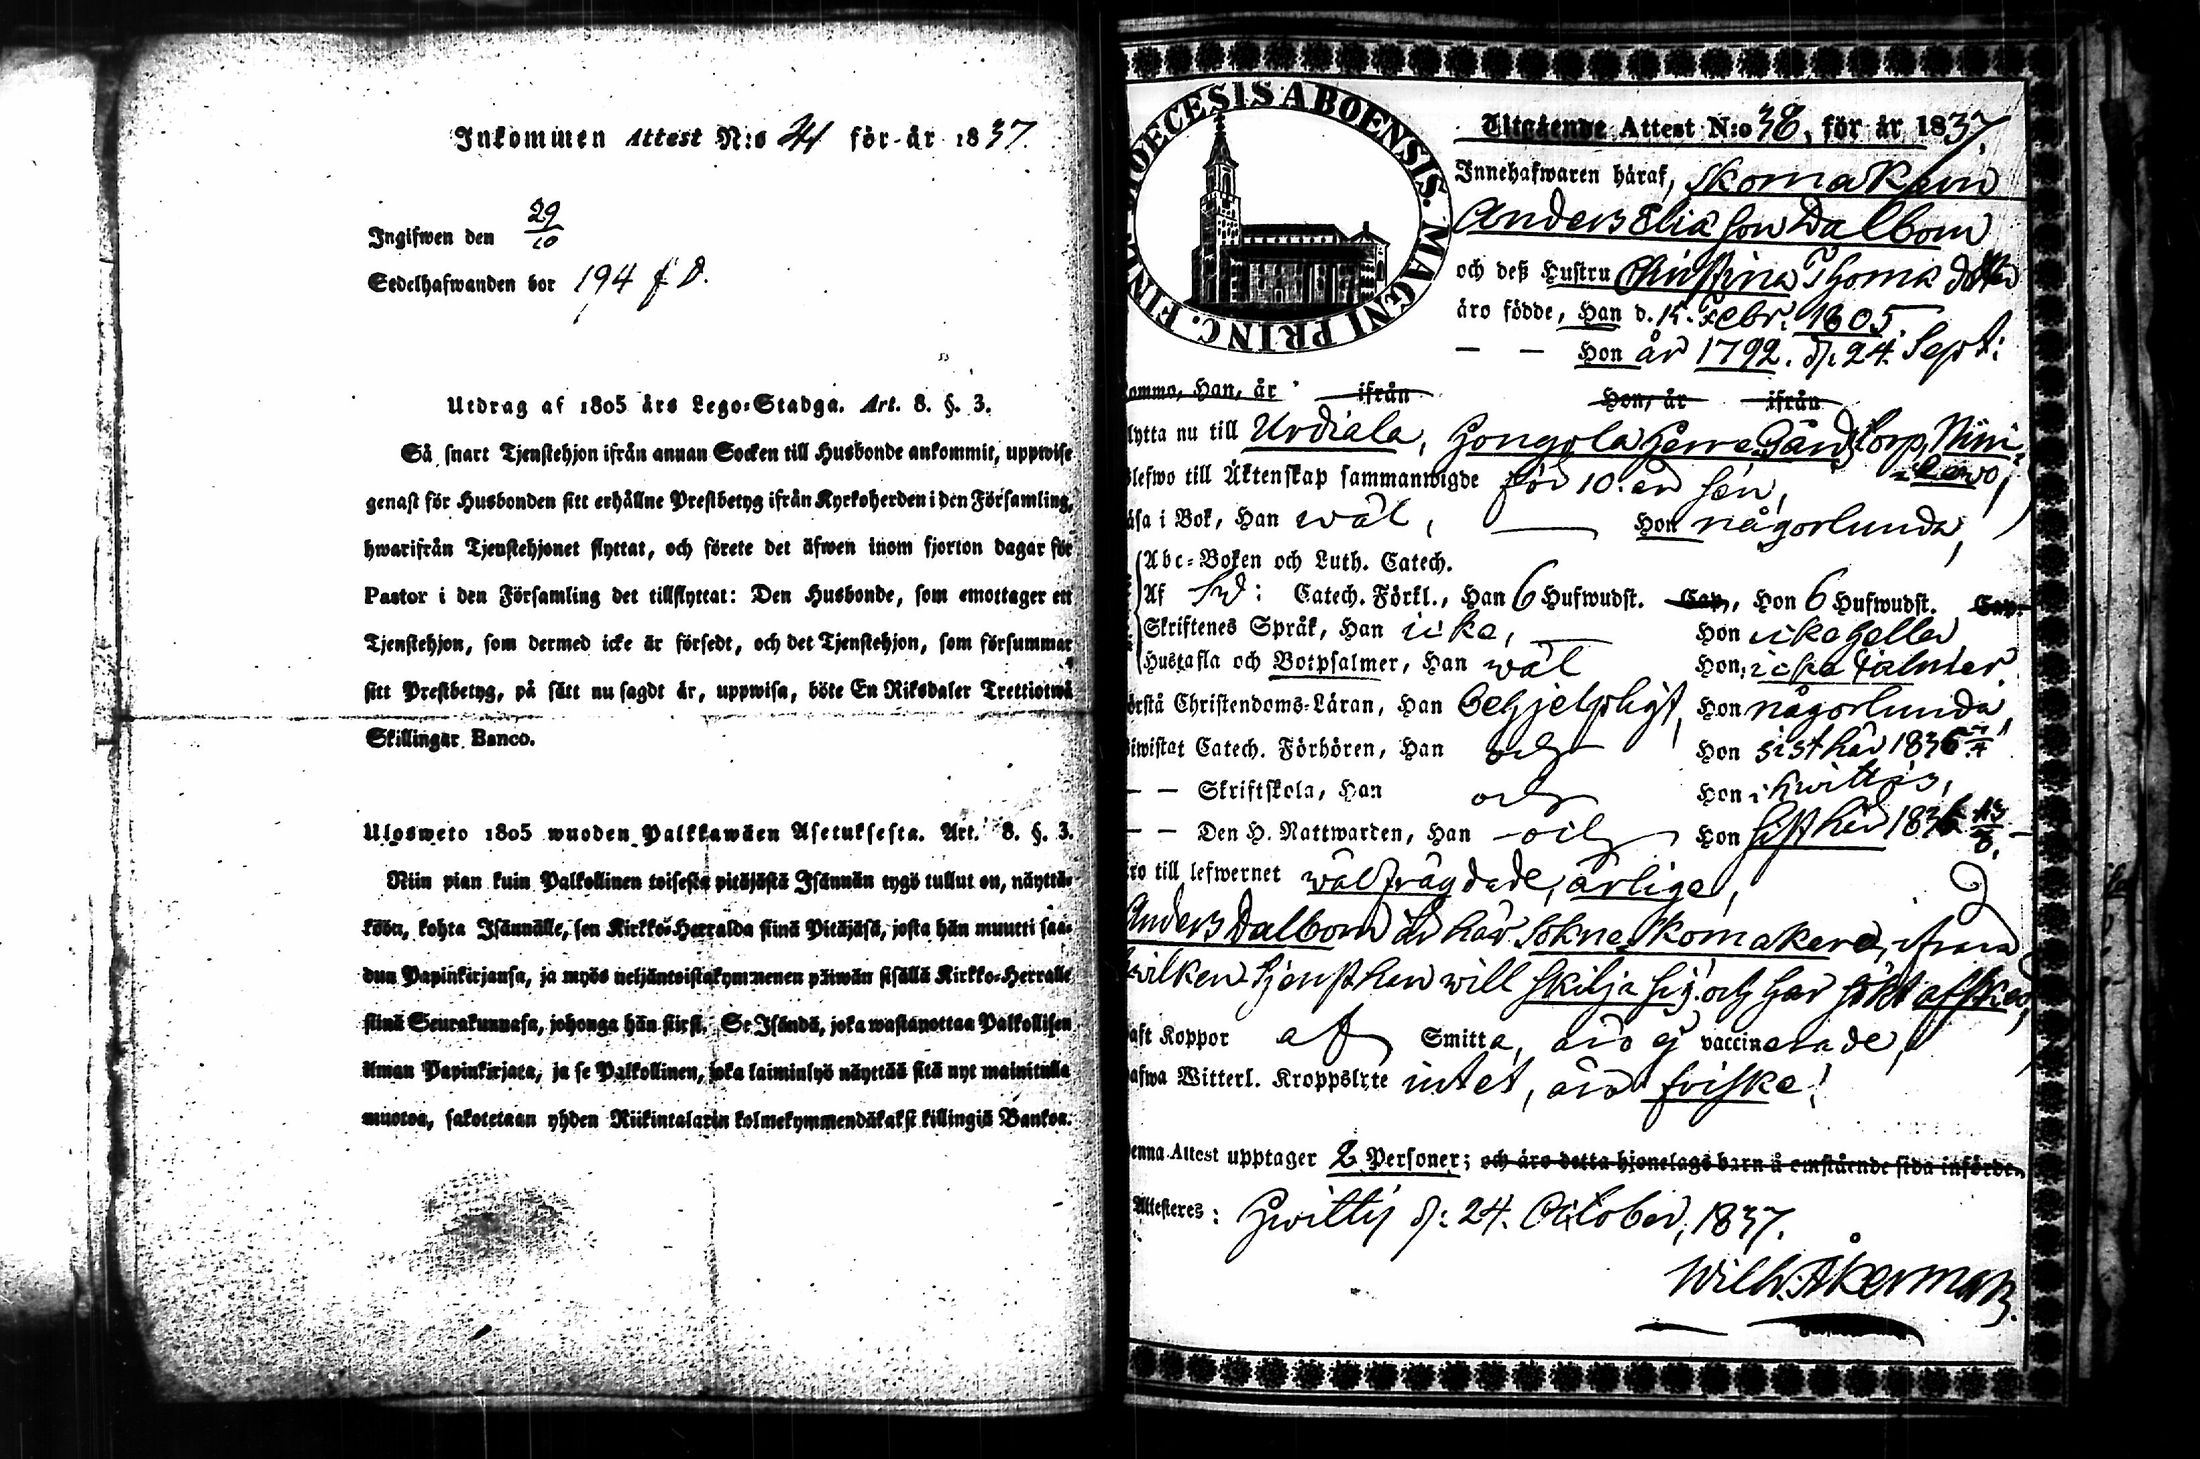 Inkommen Attest N:o 41 för år 1837.
Ingifwen den 29/10
Sedelhafwanden bor 194 f. D.
Utdrag af 1805 års Lego-Stadga. Art. 8. §. 3.
Så snart Tjenstehjon ifrån annan Socken till Husbonde ankommit, uppwise
genast för Husbonden sitt erhållne Prestbetyg ifrån Kyrkoherden i den Församling,
hwarifrån Tjenstehjonet flyttat, och förete det äfwen inom fjorton dagar för
Pastor i den Församling det tillflyttat: Den Husbonde, som emottager ett
Tjenstehjon, som dermed icke är försedt, och det Tjenstehjon, som försummar
sitt Prestbetyg, på sätt nu sagdt är, uppwisa, böte En Riksdaler Trettiotwå
Skillingar Banco.
Ulosweto 1805 wuoden Palkkawäen Asetuksesta. Art. 8. §. 3.
Niin pian kuin Palkollinen toisesta pitäjästä Isännän tygö tullut on, näyttä-
köön, kohta Isännälle, sen Kirkko-Herralda siinä Pitäjäsä, josta hän muutti saa-
dun Papinkirjansa, ja myös neljäntoistakymmenen päiwän sisällä Kirkko-Herralle
siinä Seurakunnasa, johonga hän siirsi. Se Isändä, joka wastanottaa Palkollisen
ilman Papinkirjata, ja se Palkollinen, joka laiminlyö näyttää sitä nyt mainitulla
muotoa, sakotetaan yhden Riikintalarin kolmekymmendäkaksi killingiä Bankoa.
DIOECESIS ABOENSIS. MAGNI PRINC. FINL.
Utgående Attest N:o 38, för år 1837.
Innehafwaren häraf, Skomakaren
Anders Elias son Dalbom
och deß Hustru Christina Thomæ dotter
äro födde, Han d. 15. Febr. 1805.
— — Hon år 1792. d. 24. Sept:
ommo, Han, år ifrån Hon, år ifrån
lytta nu till Urdiala, Hongola Herregård, torp, Nini-
lefwo till Äktenskap sammanwigde för 10. år sen,
äsa i Bok, Han wäl, — Hon någorlunda,
Abc-Boken och Luth. Catech.
Af Sw: Catech. Förkl., Han 6 Hufwudst. Cap., Hon 6 Hufwudst. Cap.
Skriftenes Språk, Han icke, — Hon icke heller
Hustafla och Botpsalmer, Han wäl Hon icke Psalmer.
örstå Christendoms-Läran, Han behjelpligt, Hon någorlunda,
iwistat Catech. Förhören, Han och Hon sist här 1836
— — Skriftskola, Han och Hon
— — Den H. Nattwarden, Han — och Hon sist här 1836
ro till lefwernet wälfrägdade, ärlige,
Anders Dalbom är här Sokne Skomakare, ifrån
hwilken tjenst han will skilja sig och har sökt afsked,
aft Koppor af Smitta, äro ej vaccinerade,
afwa Witterl. Kroppslyte intet, äro friske!
enna Attest upptager 2 Personer; och äro detta hjonelags barn å omstående sida införde.
Attesteres: Hwittis d: 24. October, 1837.
Wilh. Åkerman